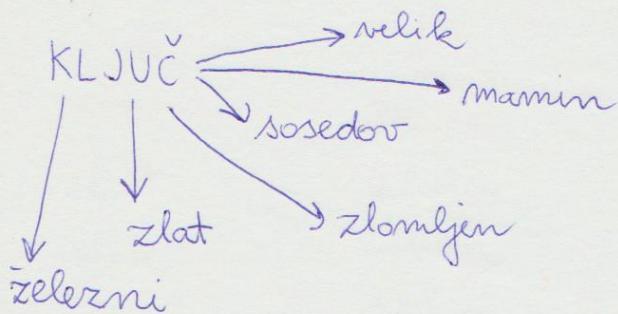 KLJUČ
velik
mamin
sosedov
zlomljen
zlat
železni